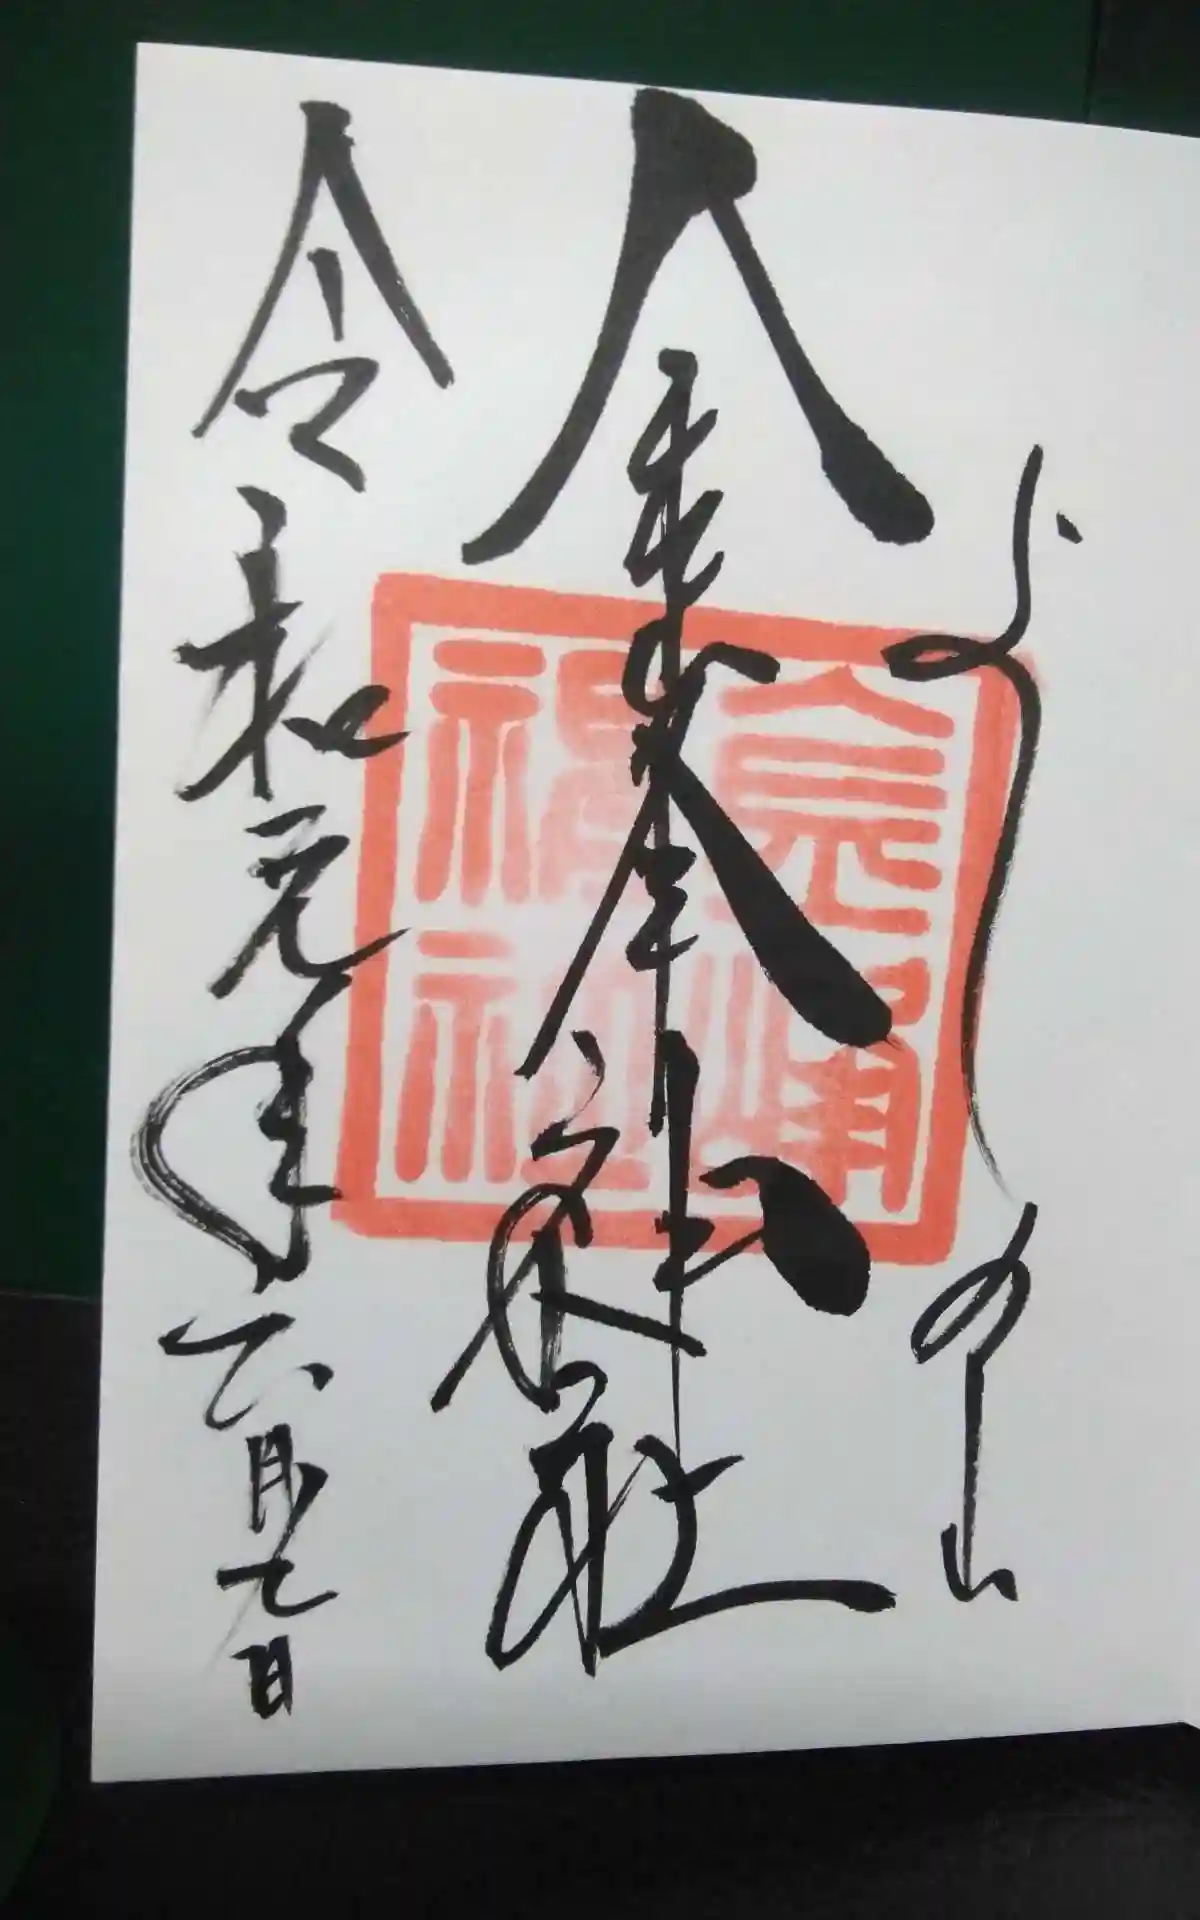 よしの山
金峯神社
金峰神社
令和元年六月七日